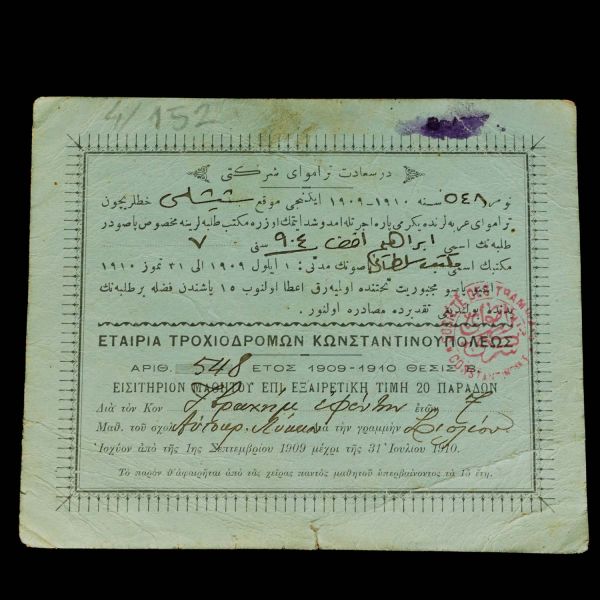 4/152
درسعادت تراموای شرکتی
نومرو ٥٤٨ سنه ١٩١٠-١٩٠٩ ایکنجی موقع ششلی خطلریچون
تراموای عربه لرنده یکرمی پاره اجرتله آمدوشد ایتمك اوزره مکتب طلبه لرینه مخصوص پاصودر
طلبه نك اسمی ابراهیم افندی ٩٠٤ سنی ٧
مکتبك اسمی مکتب سلطانی پاصونك مدتی: ١ ایلول ١٩٠٩ الی ٣١ تموز ١٩١٠
اشبو پاصو مجبوریت تحتنده اولیه رق اعطا اولنوب ١٥ یاشندن فضله بر طلبه نك
یدنده بولندیغی تقدیرده مصادره اولنور.
ΕΤΑΙΡΙΑ ΤΡΟΧΙΟΔΡΟΜΩΝ ΚΩΝΣΤΑΝΤΙΝΟΥΠΟΛΕΩΣ
ΑΡΙΘ. 548 ΕΤΟΣ 1909-1910 ΘΕΣΙΣ Β.
ΕΙΣΙΤΗΡΙΟΝ ΜΑΘΗΤΟΥ ΕΠΙ ΕΞΑΙΡΕΤΙΚΗ ΤΙΜΗ 20 ΠΑΡΑΔΩΝ
Διὰ τὸν Κον Ἰβραχὴμ ἐφέντην ἐτῶν 7
Μαθ. τοῦ σχολ. Αὐτοκρ. Λύκειον διὰ τὴν γραμμὴν Σισλίου
Ἰσχύον ἀπὸ τῆς 1ης Σεπτεμβρίου 1909 μέχρι τῆς 31 Ἰουλίου 1910.
Τὸ παρὸν θ'ἀφαιρῆται ἀπὸ τὰς χεῖρας παντὸς μαθητοῦ ὑπερβαίνοντος τὰ 15 ἔτη.
SOCIÉTÉ DES TRAMWAYS
CONSTANTINOPLE